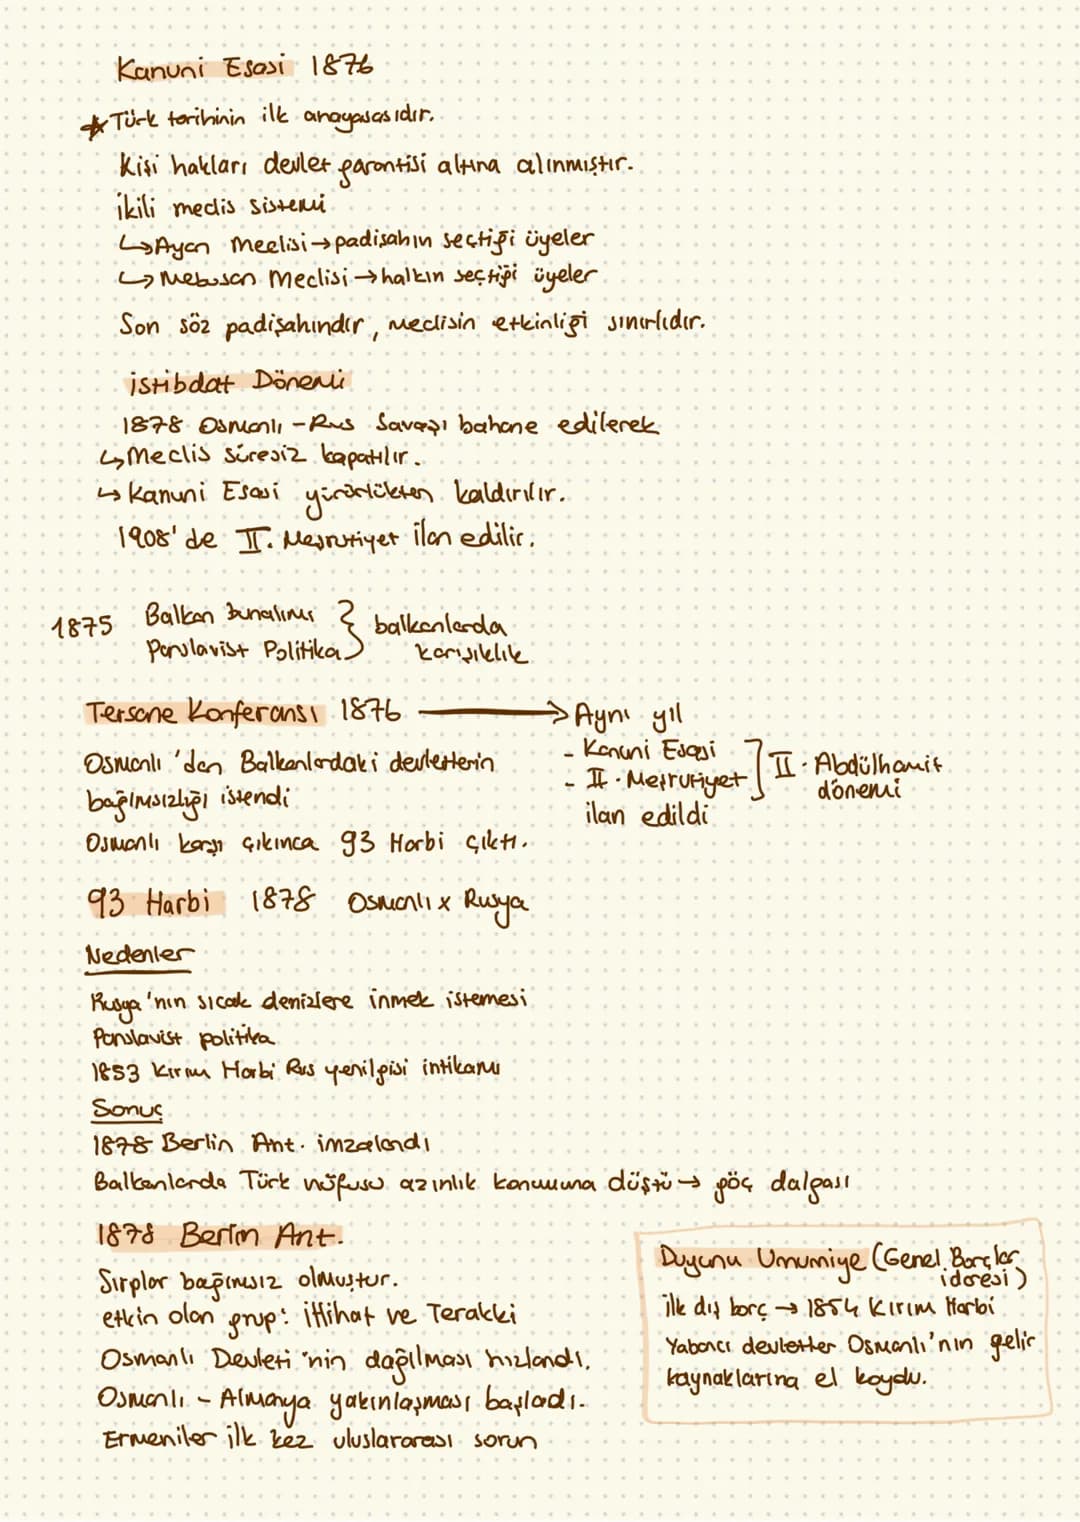 Kanuni Esasi 1876
☆ Türk tarihinin ilk anayasasıdır.
Kişi hakları devlet garantisi altına alınmıştır.
İkili meclis sistemi
↳ Ayan Meclisi → padişahın seçtiği üyeler
↳ Mebusan Meclisi → halkın seçtiği üyeler
Son söz padişahındır, meclisin etkinliği sınırlıdır.
istibdat Dönemi
1878 Osmanlı - Rus Savaşı bahane edilerek
↳ Meclis süresiz kapatılır.
↳ Kanuni Esasi yürürlükten kaldırılır.
1908'de II. Meşrutiyet ilan edilir.
1875 Balkan bunalımı
Panslavist Politika } balkanlarda karışıklık
Tersane Konferansı 1876 → Aynı yıl
- Kanuni Esasi
- II. Meşrutiyet ] II. Abdülhamit dönemi
ilan edildi
Osmanlı'dan Balkanlardaki devletlerin
bağımsızlığı istendi
Osmanlı karşı çıkınca 93 Harbi çıktı.
93 Harbi 1878 Osmanlı x Rusya
Nedenler
Rusya'nın sıcak denizlere inmek istemesi
Panslavist politika
1853 Kırım Harbi Rus yenilgisi intikamı
Sonuç
1878 Berlin Ant. imzalandı
Balkanlarda Türk nüfusu azınlık konumuna düştü → göç dalgası
1878 Berlin Ant.
Sırplar bağımsız olmuştur.
etkin olan grup: İttihat ve Terakki
Osmanlı Devleti'nin dağılması hızlandı.
Osmanlı - Almanya yakınlaşması başladı.
Ermeniler ilk kez uluslararası sorun
Duyunu Umumiye (Genel Borçlar
idaresi)
ilk dış borç → 1854 Kırım Harbi
Yabancı devletler Osmanlı'nın gelir
kaynaklarına el koydu.